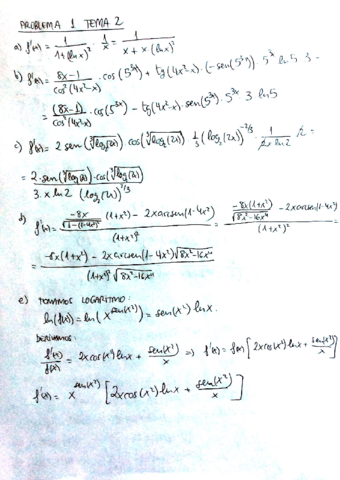 PROBLEMA 1 TEMA 2
a) f'(x) = 1/(1+(lnx)²) · 1/x = 1/(x + x(lnx)²)
b) f'(x) = (8x-1)/(cos²(4x²-x)) · cos(5³ˣ) + tg(4x²-x)·(-sen(5³ˣ))·5³ˣ ln5 3 =
= (8x-1)/(cos²(4x²-x)) · cos(5³ˣ) - tg(4x²-x)·sen(5³ˣ)·5³ˣ 3 ln5
c) f'(x) = 2 sen(∛log₂(2x))·cos(∛log₂(2x)) 1/3 (log₂(2x))^(-2/3) · 1/(2x ln2) 2 =
= 2·sen(∛log₂(2x))·cos(∛log₂(2x)) / (3·x ln2 (log₂(2x))^(2/3))
d) f'(x) = (-8x/√(1-(1-4x²)²) (1+x²) - 2x arcsen(1-4x²)) / (1+x²)² = (-8x(1+x²)/√(8x²-16x⁴) - 2x arcsen(1-4x²)) / (1+x²)² =
= (-8x(1+x²) - 2x arcsen(1-4x²)√(8x²-16x⁴)) / ((1+x²)² √(8x²-16x⁴))
e) TOMAMOS LOGARITMO:
ln(f(x)) = ln(x^(sen(x²))) = sen(x²) lnx.
DERIVAMOS:
f'(x)/f(x) = 2x cos(x²) lnx + sen(x²)/x => f'(x) = f(x) [2x cos(x²) lnx + sen(x²)/x]
f'(x) = x^(sen(x²)) [2x cos(x²) lnx + sen(x²)/x]